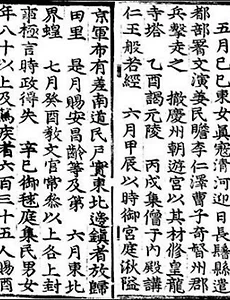 五月己巳東女眞寇清河迎日長鬐縣遣
都部署文演姜民瞻李仁澤曹子奇督州郡
兵擊走之 撤慶州朝遊宮以其材修皇龍
寺塔 乙酉謁元陵 丙戌集僧于內殿講
仁王般若經 六月甲辰以時御宮庭湫隘
京軍布有差南道民戶實東北邊鎮者放歸
田里 是月賜安昌齡等及第 六月東北
界蝗 七月癸酉敎文官常叅以上各上封
事極言時政得失 辛巳御毬庭集民男女
年八十以上及篤疾者六百三十五人賜酒